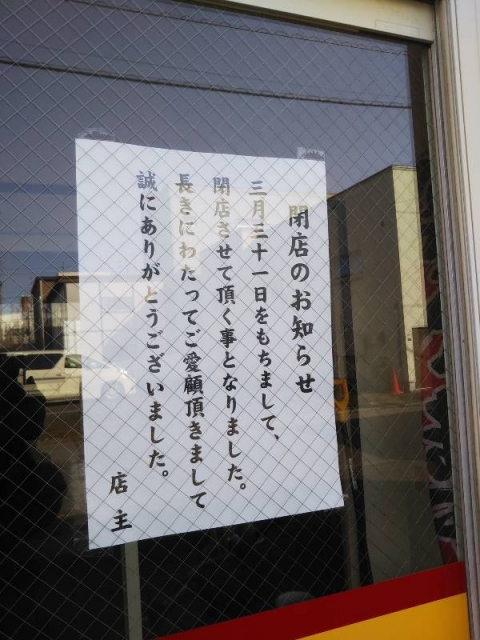 閉店のお知らせ
三月三十一日をもちまして、
閉店させて頂く事となりました。
長きにわたってご愛顧頂きまして
誠にありがとうございました。
店主